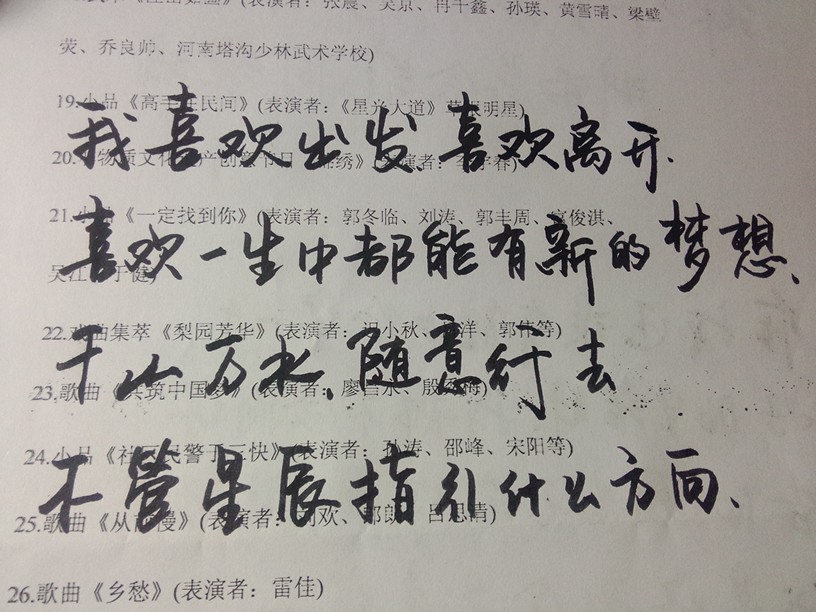 张晨、吴京、冉千鑫、孙瑛、黄雪晴、梁壁
荧、乔良帅、河南塔沟少林武术学校)
19.小品《高手在民间》(表演者:《星光大道》草根明星)
我喜欢出发、喜欢离开.
20.物质文化遗产创意节目《锦绣》(表演者:李宇春)
21.小品《一定找到你》(表演者:郭冬临、刘涛、郭丰周、高俊淇、
喜欢一生中都能有新的梦想、
吴江、于健)
22.戏曲集萃《梨园芳华》(表演者:冯小秋、洋、郭伟等)
千山万水、随意行去
23.歌曲《共筑中国梦》(表演者:廖昌永、殷秀梅)
24.小品《社区民警于三快》(表演者:孙涛、邵峰、宋阳等)
不管星辰指引什么方向、
25.歌曲《从前慢》(表演者:刘欢、郎朗、吕思清)
26.歌曲《乡愁》(表演者:雷佳)